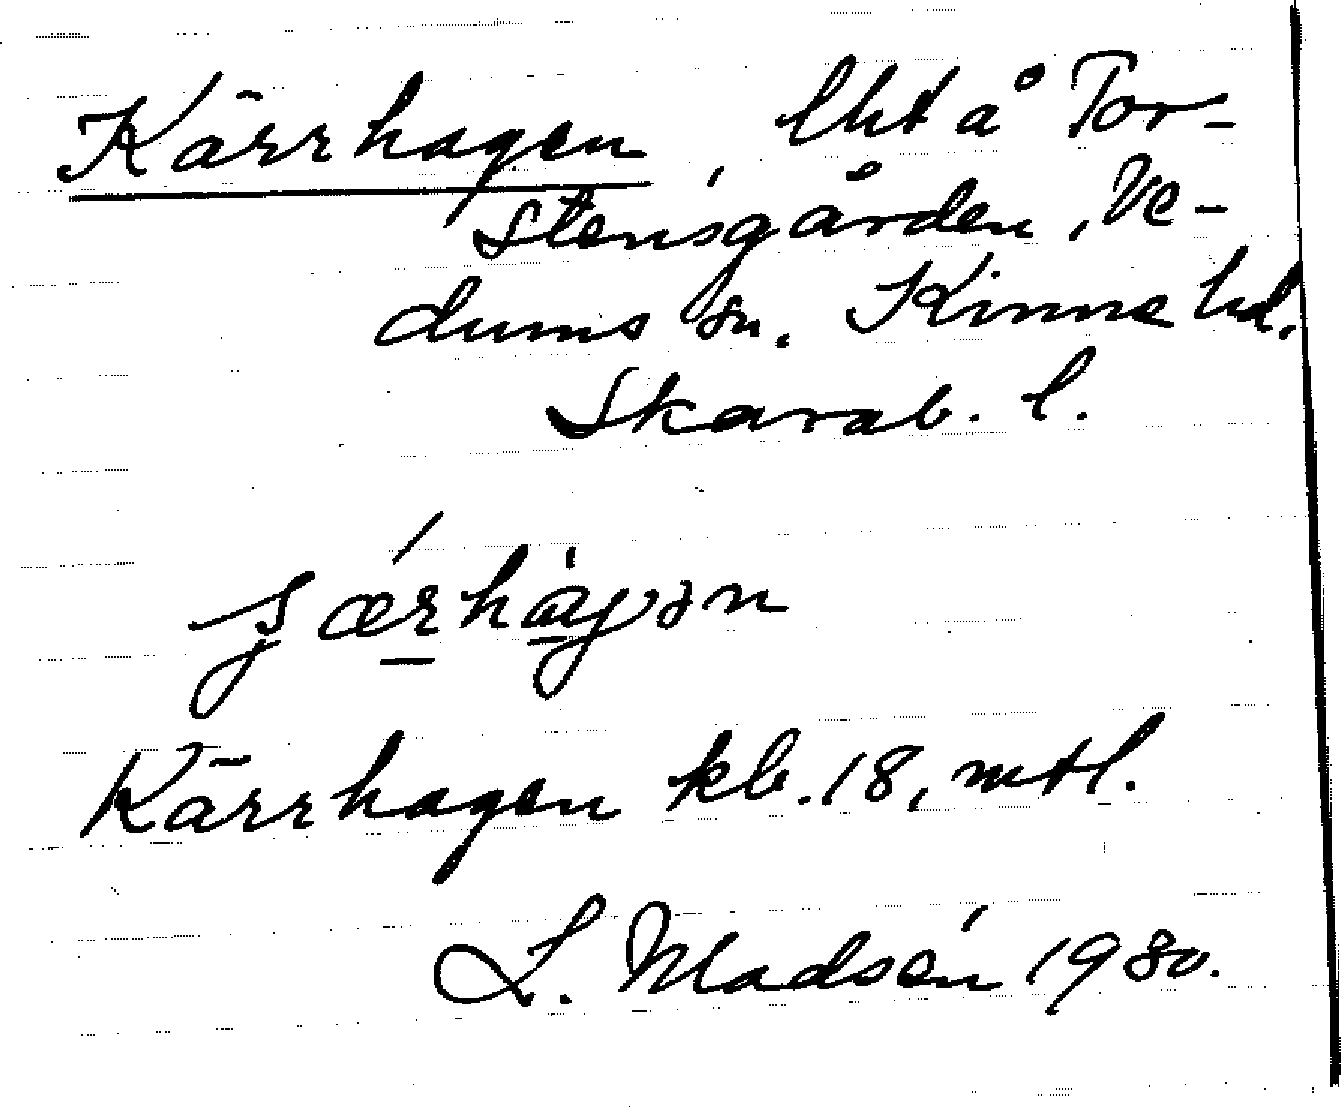 Kärrhagen, lht å Tor-
stensgården, Ve-
dums sn. Kinne hd.
Skarab. l.
Kärrhagen kb. 18, mtl.
L. Madsén 1980.